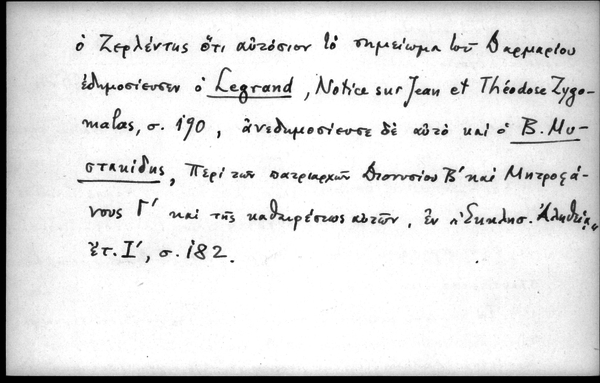 ὁ Ζερλέντης ὅτι αὐτόσιον τὸ σημείωμα τοῦ Δαρμαρίου
ἐδημοσίευσεν ὁ Legrand, Notice sur Jean et Théodose Zygo-
malas, σ. 190, ἀνεδημοσίευσε δὲ αὐτὸ καὶ ὁ Β. Μυ-
στακίδης, Περὶ των πατριαρχῶν Διονυσίου Β' καὶ Μητροφά-
νους Γ' καὶ τῆς καθαιρέσεως αὐτῶν, ἐν „Ἐκκλησ. Ἀληθείᾳ"
ἔτ. Ι', σ. 182.